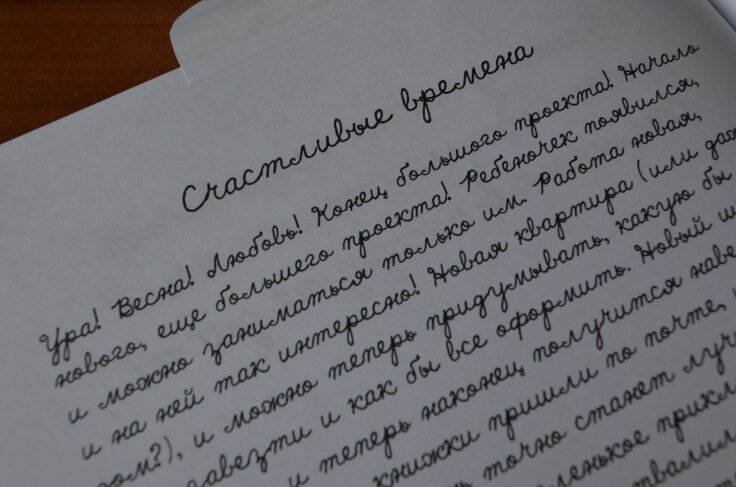 Счастливые времена
Ура! Весна! Любовь! Конец большого проекта! Начало
нового, еще большего проекта! Ребеночек появился,
и можно заниматься только им. Работа новая,
и на ней так интересно! Новая квартира (или даж
ом?), и можно теперь придумывать, какую бы
завезти и как бы все оформить. Новый ш
и теперь наконец получится наве
книжки пришли по почте,
точно станет луч
ленькое прикл
твалил